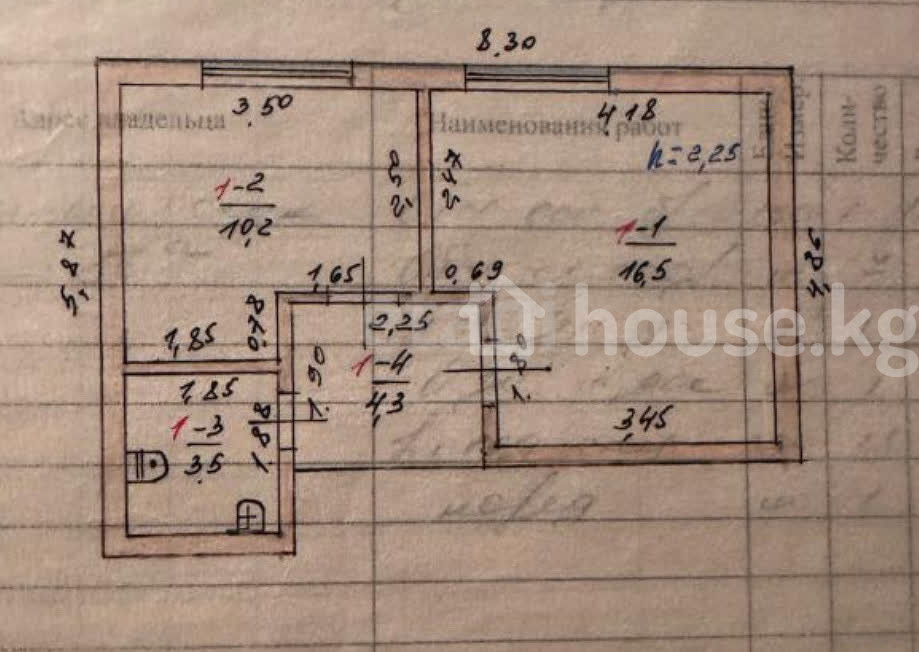 8.30
3.50
4.18
Адрес владельца
Наименования работ
Коли-
чество
h=2,25
2,50
2,47
1-2
10,2
1-1
16,5
5,87
4,85
1,65
0,69
0,78
2,25
1,85
house.kg
1,85
1.90
1-4
4,3
1.80
3,45
1-3
3,5
1.88